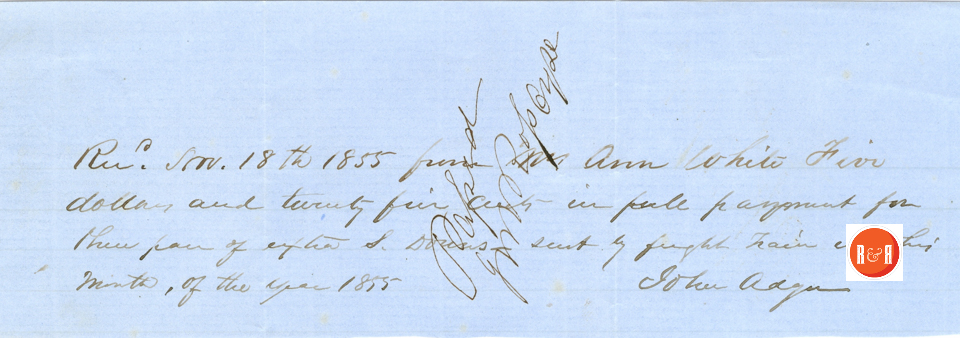 Recd. Nov. 18th 1855 from Mrs Ann White Five
dollars and twenty five cents in full payment for
three pair of extra S. sent by freight train this
Month, of the year 1855
John Adger
R&R